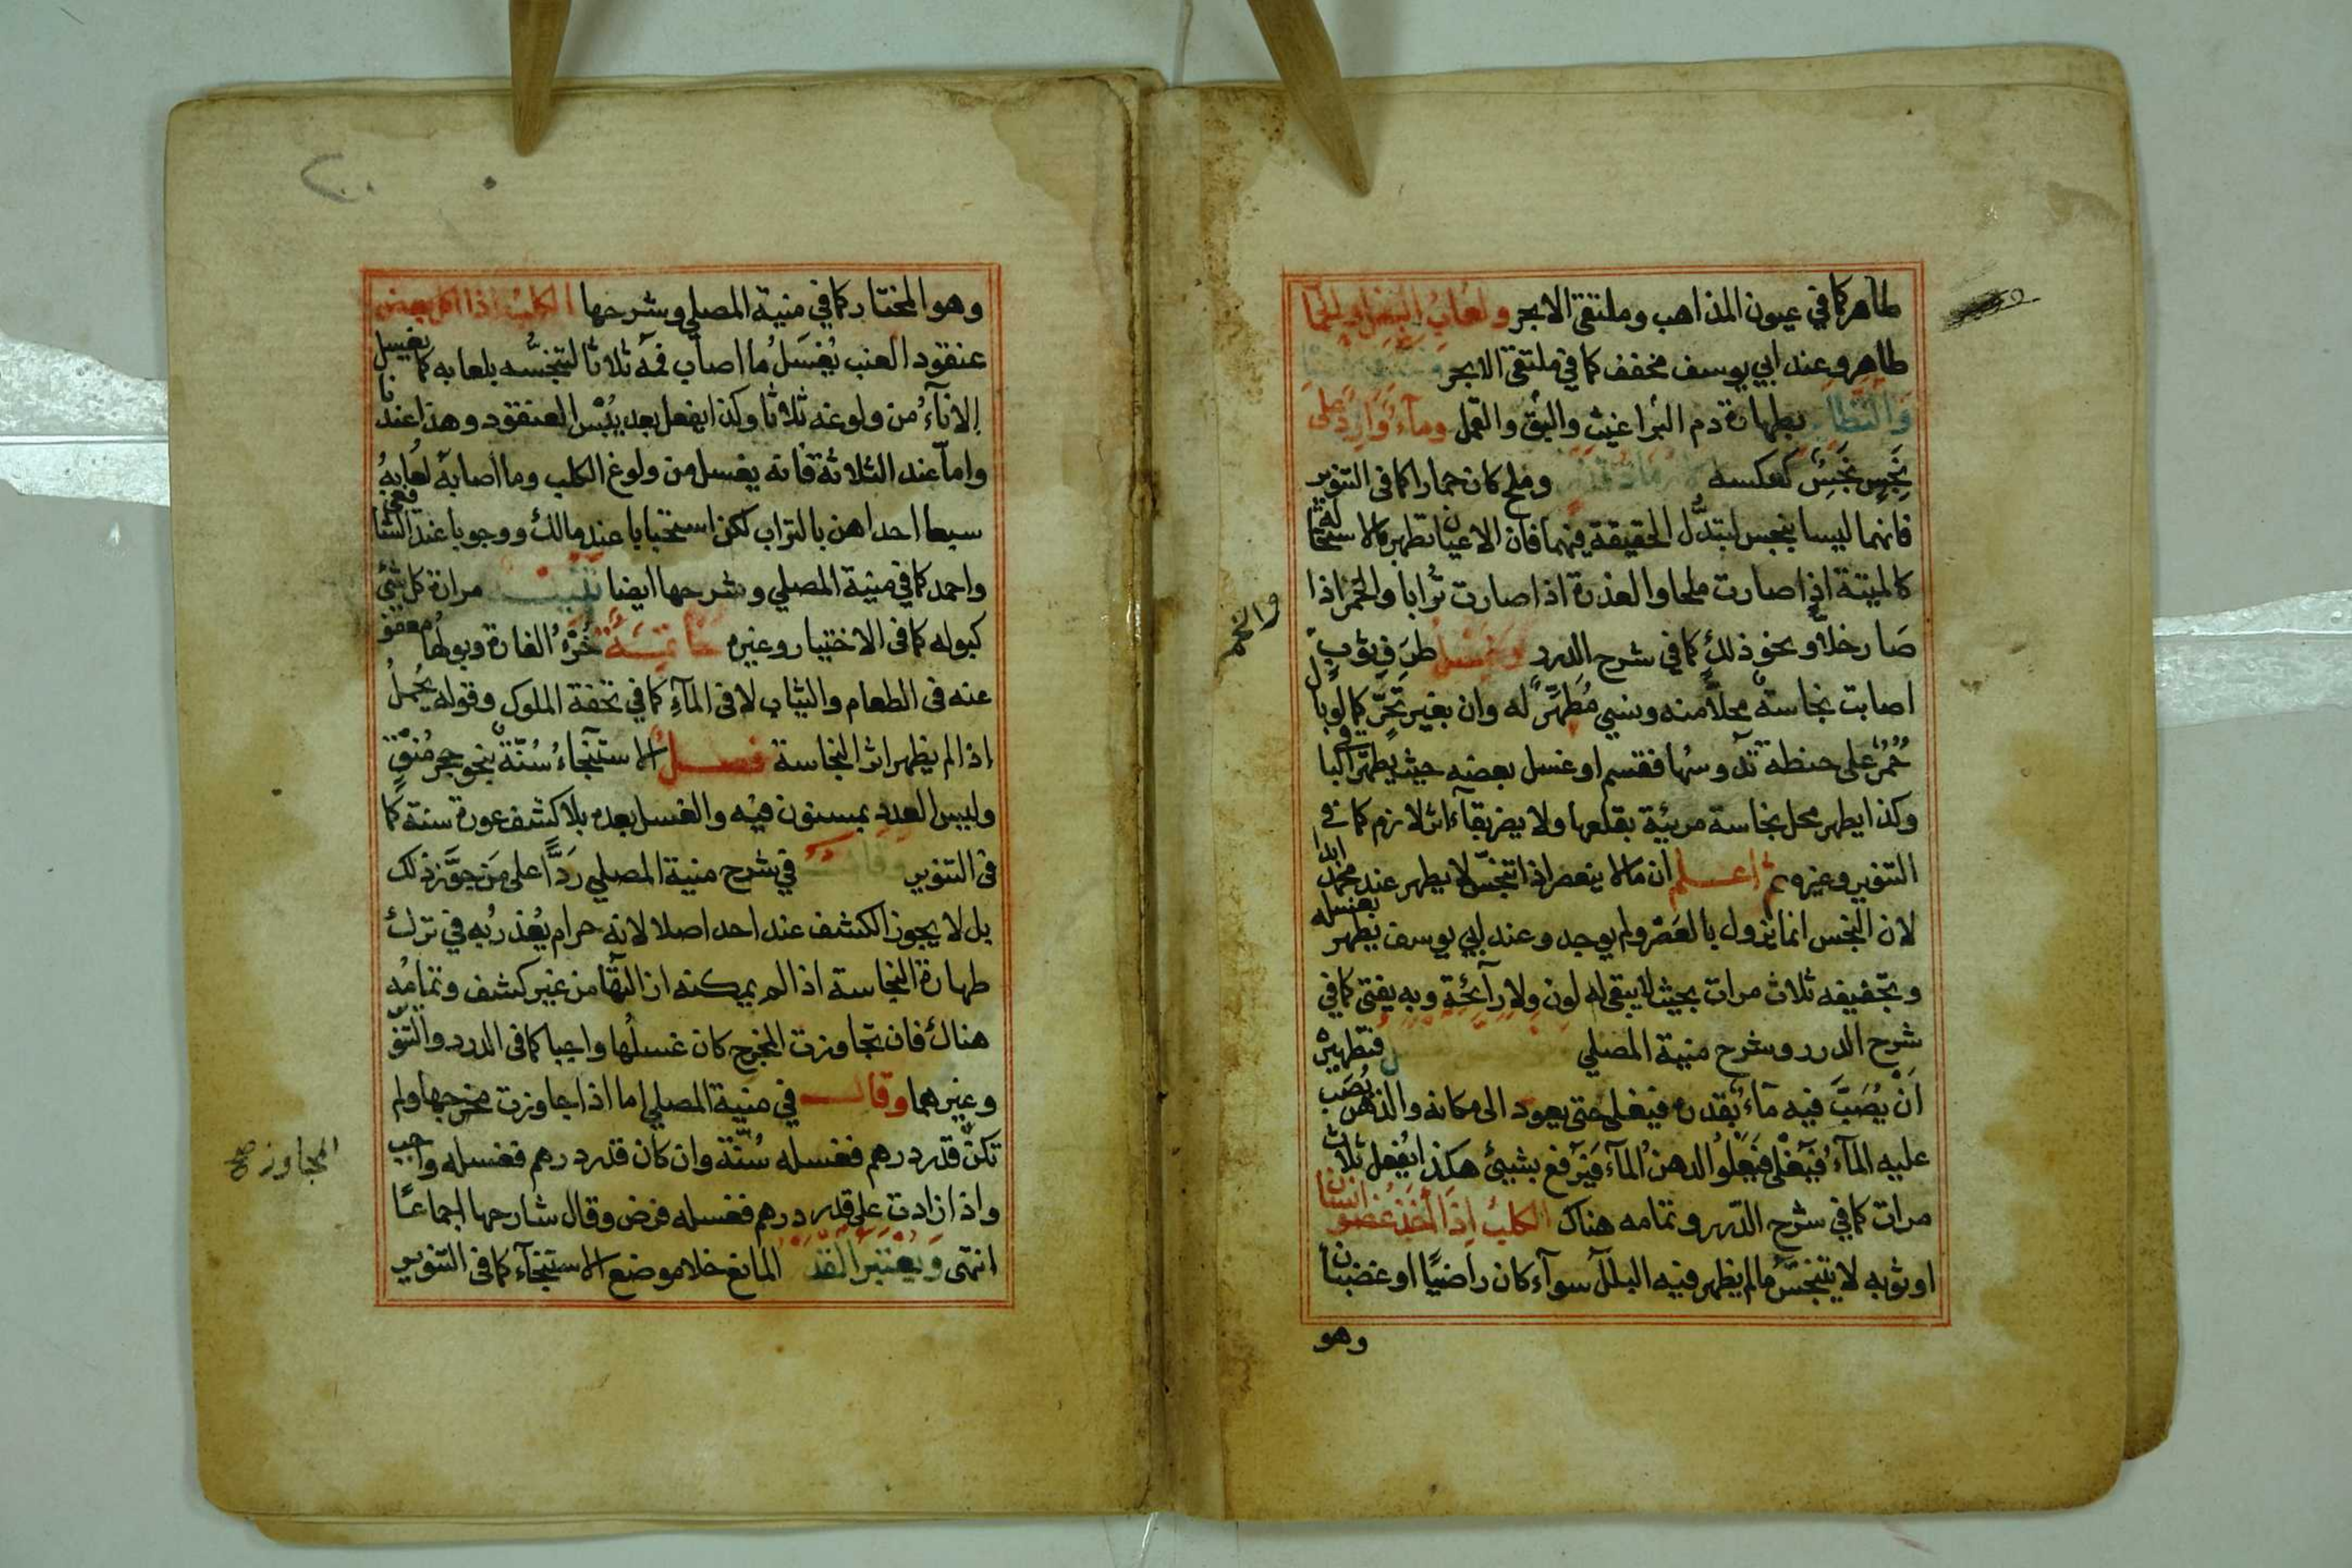 طاهر كما في عيون المذاهب وملتقى الابحر ولعاب البغل والحما
طاهر وعند ابي يوسف مخفف كما في ملتقى الابحر
بطهارة دم البراغيث والبق والقمل وماء وارد على
نجس نجس كعكسه وملح كان حمارا كما في التنوير
فانهما ليسا بنجس لتبدل الحقيقة فيهما فان الاعيان تطهر بالاستحالة
كالميتة اذا صارت ملحا والعذرة اذا صارت ترابا والخمر اذا
صار خلا ونحو ذلك كما في شرح الدرر وغسل طرف ثوب
اصابت نجاسة محلا منه ونسي مطهر له وان بغير تحر كما لو بال
حمر على حنطة تدوسها فقسم او غسل بعضه حيث يطهر الباقي
وكذا يطهر محل نجاسة مرئية بقلعها ولا يضر بقاء اثر لازم كما في
التنوير وغيره ثم اعلم ان ما لا ينعصر اذا تنجس لا يطهر عند محمد ابدا
لان النجس انما يزول بالعصر ولم يوجد وعند ابي يوسف يطهر بغسله
وتجفيفه ثلاث مرات بحيث لا يبقى له لون ولا رائحة وبه يفتى كما في
شرح الدرر وشرح منية المصلي فتطهيره
ان يصب فيه ماء بقدره فيغلى حتى يعود الى مكانه والدهن يصب
عليه الماء فيغلى فيعلو الدهن الماء فيرفع بشيئ هكذا يفعل ثلاث
مرات كما في شرح الدرر وتمامه هناك الكلب اذا اخذ عضو انسان
او ثوبه لا يتنجس ما لم يظهر فيه البلل سواء كان راضيا او غضبانا
وهو
وهو المختار كما في منية المصلي وشرحها الكلب اذا اكل بعض
عنقود العنب يغسل ما اصاب فمه ثلاثا لتنجسه بلعابه كما يغسل
الاناء من ولوغه ثلاثا وكذا يفعل بعد يبس العنقود وهذا عندنا
واما عند الثلاثة فانه يغسل من ولوغ الكلب وما اصابه لعابه
سبعا احداهن بالتراب لكن استحبابا عند مالك ووجوبا عند الشافعي
واحمد كما في منية المصلي وشرحها ايضا تنبيه مرارة كل شئ
كبوله كما في الاختيار وغيره خاتمة خرء الفارة وبولها معفو
عنه في الطعام والثياب لا في الماء كما في تحفة الملوك وقوله يحمل
اذا لم يظهر اثر النجاسة فصل الاستنجاء سنة بنحو حجر منق
وليس العدد بمسنون فيه والغسل بعده بلا كشف عورة سنة كما
في التنوير وقال في شرح منية المصلي ردا على من جوز ذلك
بل لا يجوز الكشف عند احد اصلا لانه حرام يعذر به في ترك
طهارة النجاسة اذا لم يمكنه ازالتها من غير كشف وتمامه
هناك فان تجاوزت المخرج كان غسلها واجبا كما في الدرر والتنو
وغيرهما وقال في منية المصلي اما اذا جاوزت مخرجها ولم
تكن قدر درهم فغسله سنة وان كان قدر درهم فغسله واجب
المجاوز صح
واذا زادت على قدر درهم فغسله فرض وقال شارحها اجماعا
انتهى ويعتبر القدر المانع خلا موضع الاستنجاء كما في التنوير